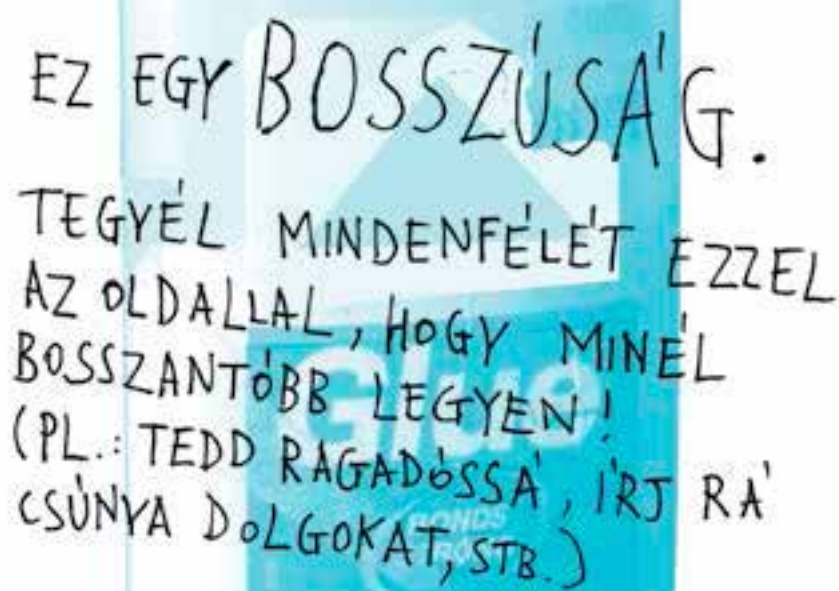 EZ EGY BOSSZÚSÁG.
TEGYÉL MINDENFÉLÉT EZZEL
AZ OLDALLAL, HOGY MINÉL
BOSSZANTÓBB LEGYEN!
(PL.: TEDD RAGADÓSSÁ, ÍRJ RÁ
CSÚNYA DOLGOKAT, STB.)
Glue
BONDS